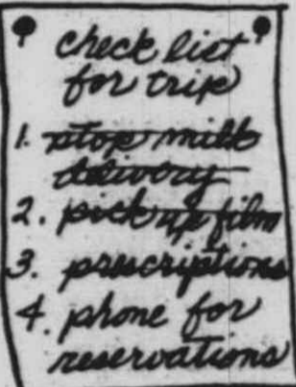 check list
for trip
1. stop milk
delivery
2. pick up film
3. prescriptions
4. phone for
reservations